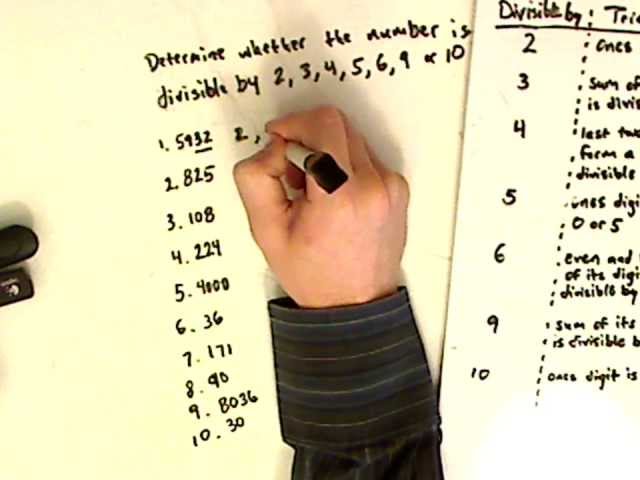 Determine whether the number is
divisible by 2, 3, 4, 5, 6, 9 or 10
1. 5932 2,
2. 825
3. 108
4. 224
5. 4000
6. 36
7. 171
8. 90
9. 8036
10. 30
Divisible by:
2 ones
3 sum of
is divis
4 last two
form a
divisible
5 ones digi
0 or 5
6 even and
of its digi
divisible by
9 sum of its
is divisible b
10 ones digit is